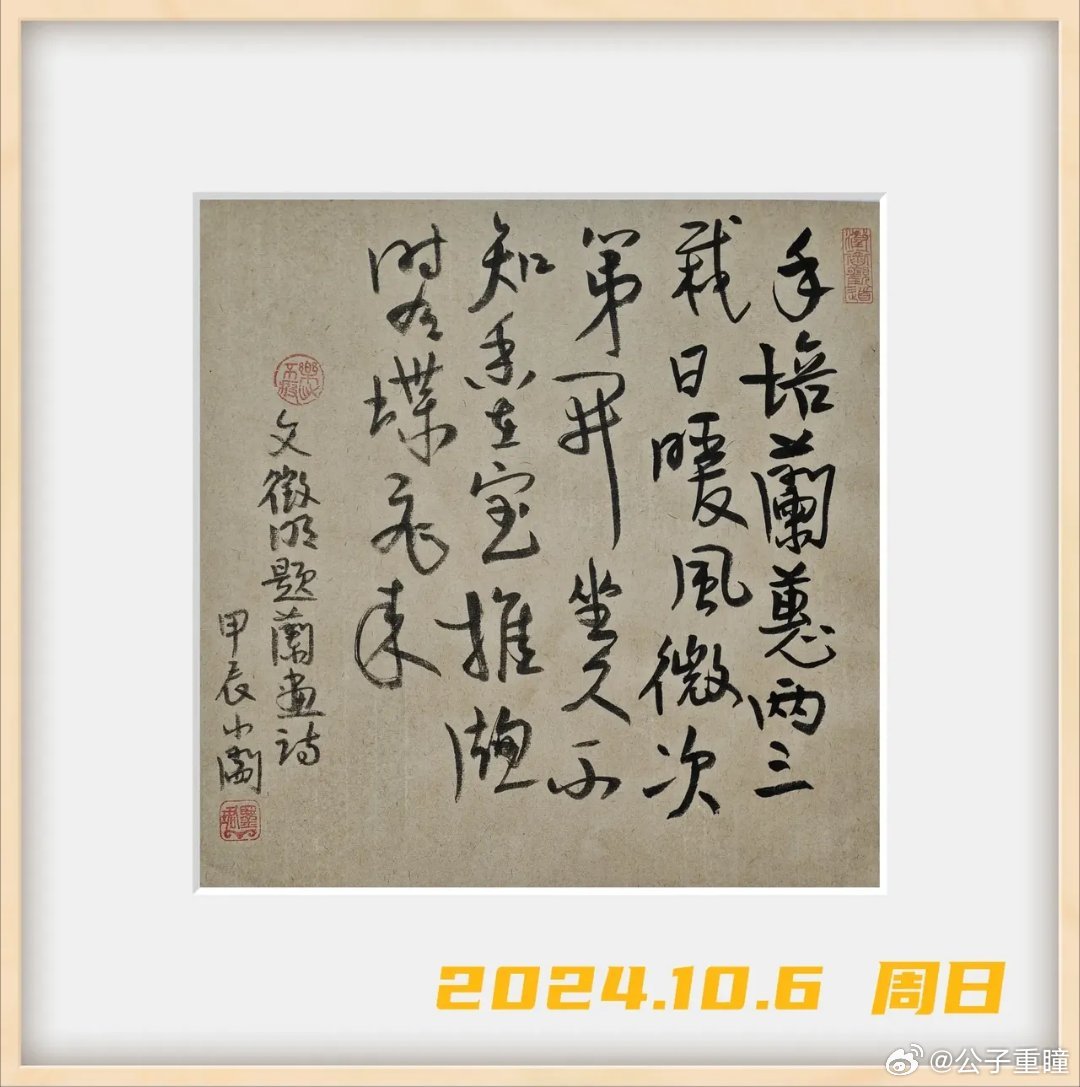 澄懷觀道
手培蘭蕙两三
栽日暖風微次
第開坐久不
知香在室推牕
時有蝶飛来
樂此不疲
文徵明題蘭畫詩
甲辰小
2024.10.6 周日
@公子重瞳